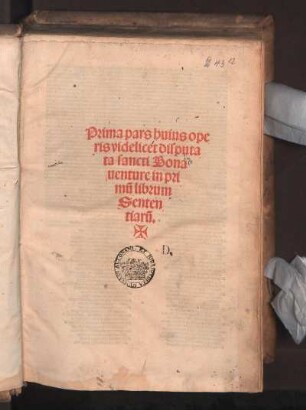 Prima pars huius ope
ris videlicet disputa
ta sancti Bona
uenture in pri
mū librum
Senten
tiarū.
D.